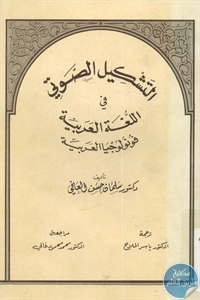 التشكيل الصوتي
في
اللغة العربية
فونولوجيا العربية
تأليف
دكتور سلمان حسن العاني
ترجمة
الدكتور ياسر الملاح
مراجعة
الدكتور محمد محمود غالي